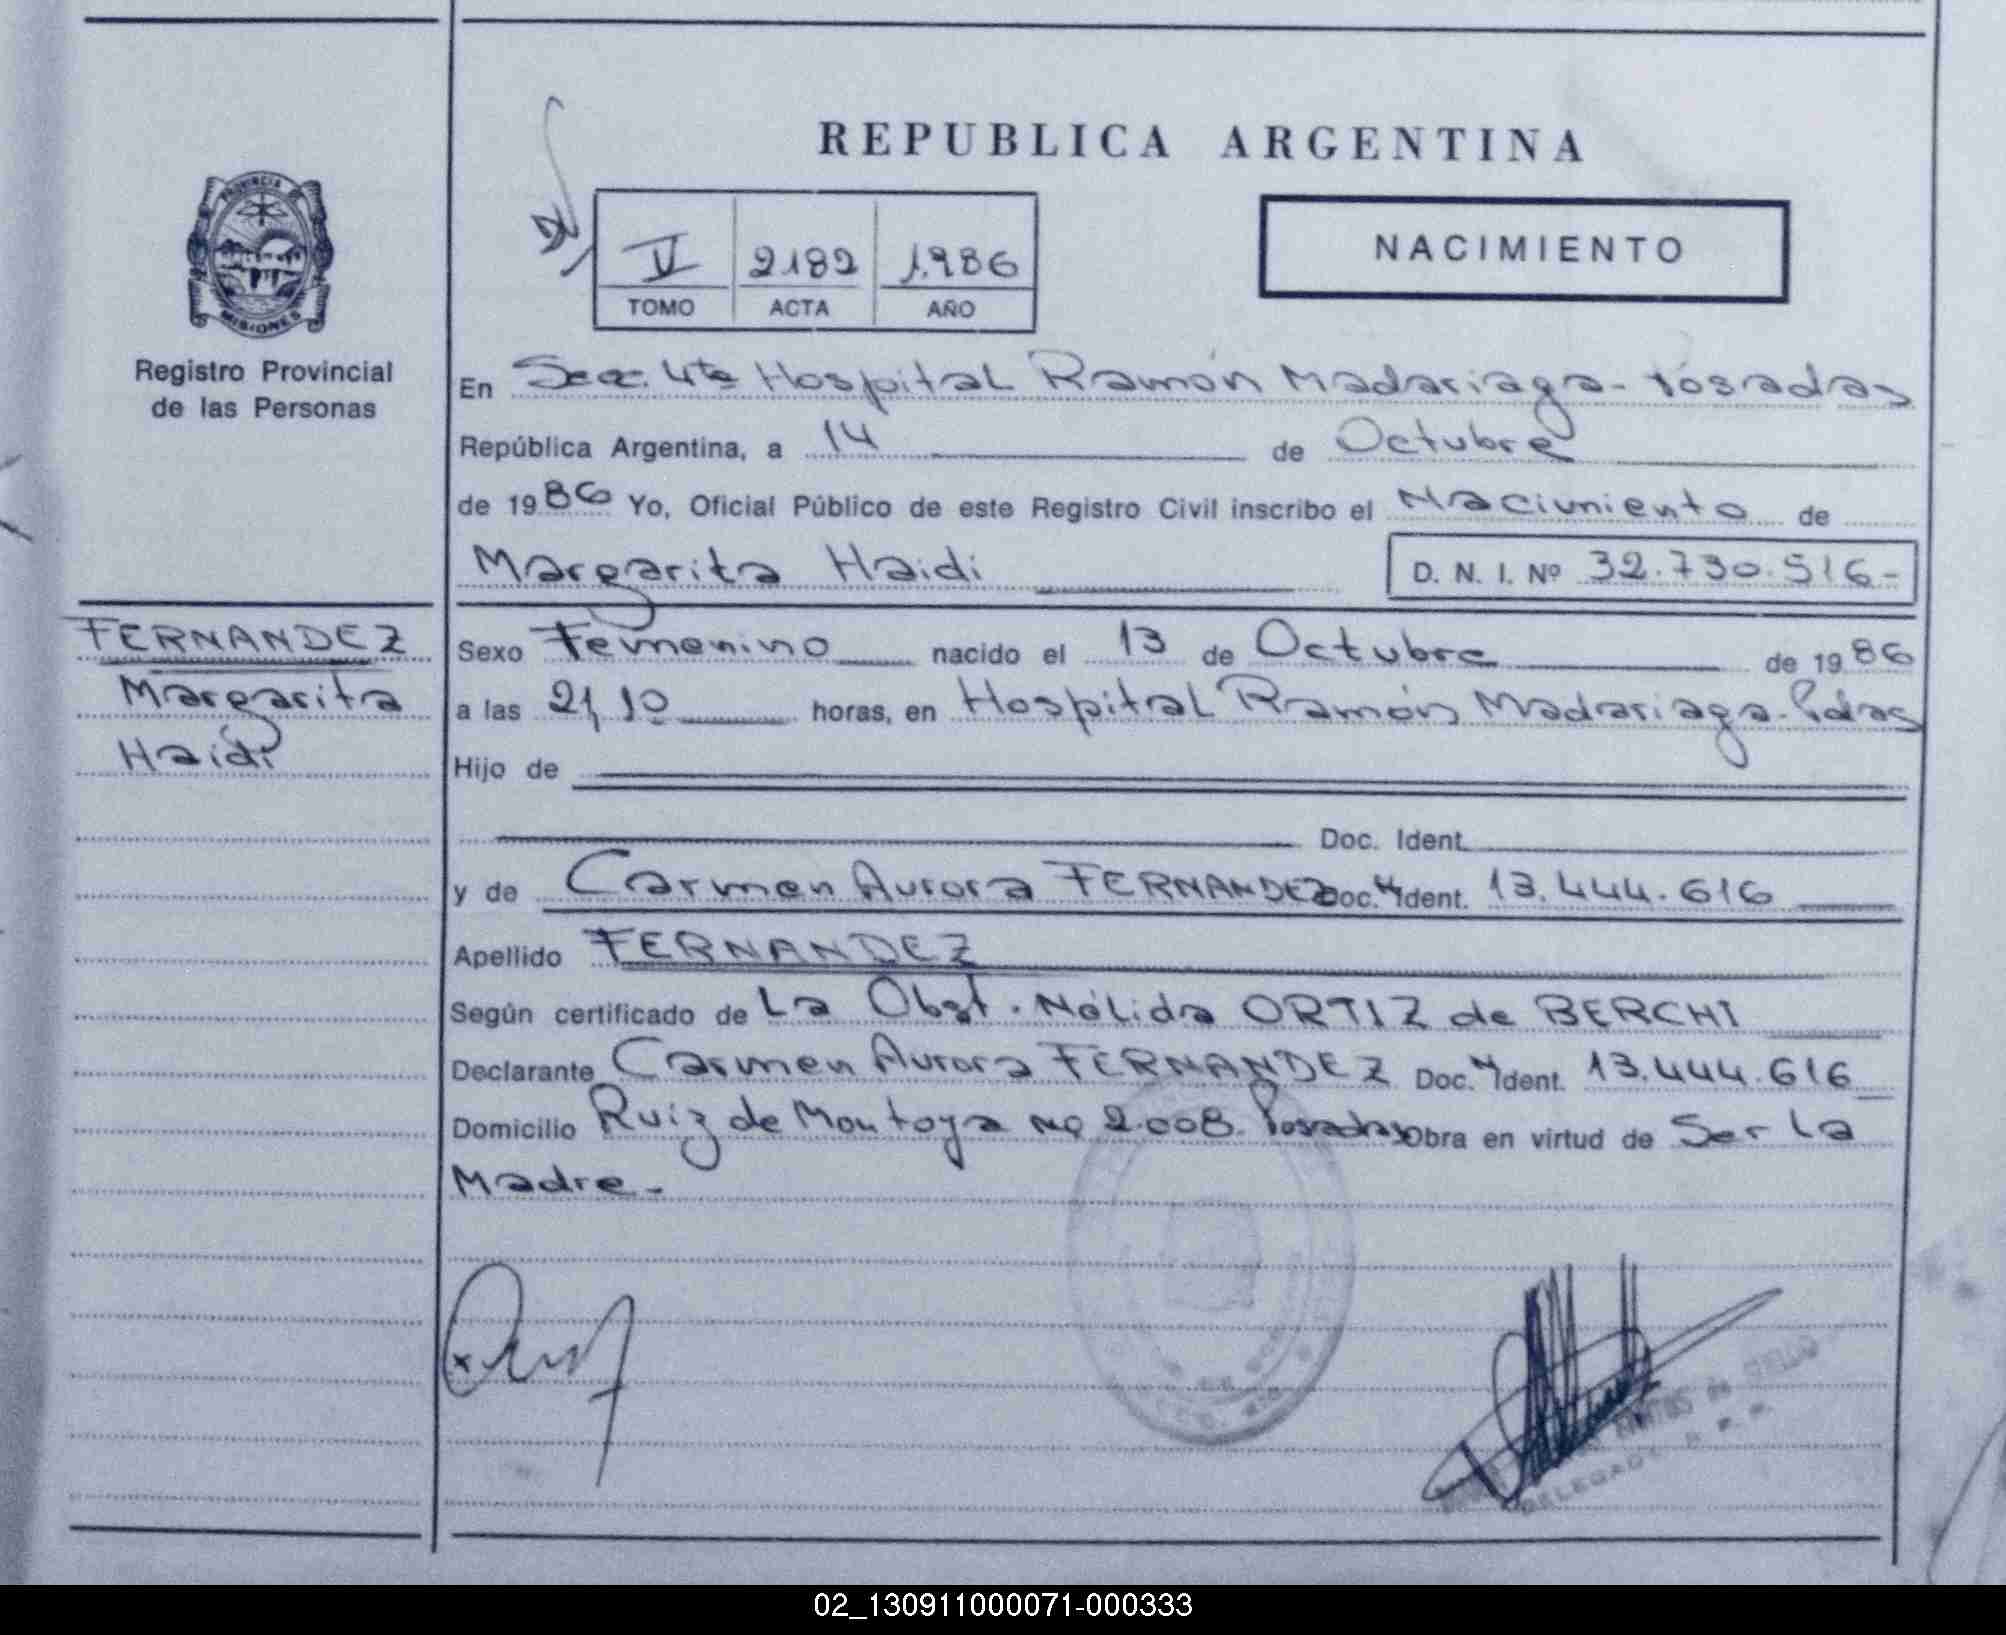 REPUBLICA ARGENTINA
PROVINCIA DE
MISIONES
Registro Provincial
de las Personas
V 2182 1.986
TOMO ACTA AÑO
NACIMIENTO
En Secc. 4ta Hospital Ramón Madariaga - Posadas
República Argentina, a 14 de Octubre
de 1986 Yo, Oficial Público de este Registro Civil inscribo el Nacimiento de
Margarita Haidi D. N. I. Nº 32.730.516-
FERNANDEZ
Margarita
Haidi
Sexo Femenino nacido el 13 de Octubre de 1986
a las 21,10 horas, en Hospital Ramón Madariaga - Pdas
Hijo de
Doc. Ident.
y de Carmen Aurora FERNANDEZ Doc. Ident. 13.444.616
Apellido FERNANDEZ
Según certificado de La Obst. Nélida ORTIZ de BERCHI
Declarante Carmen Aurora FERNANDEZ Doc. Ident. 13.444.616
Domicilio Ruiz de Montoya Nº 2.008. Posadas Obra en virtud de Ser La
Madre.-
02_130911000071-000333